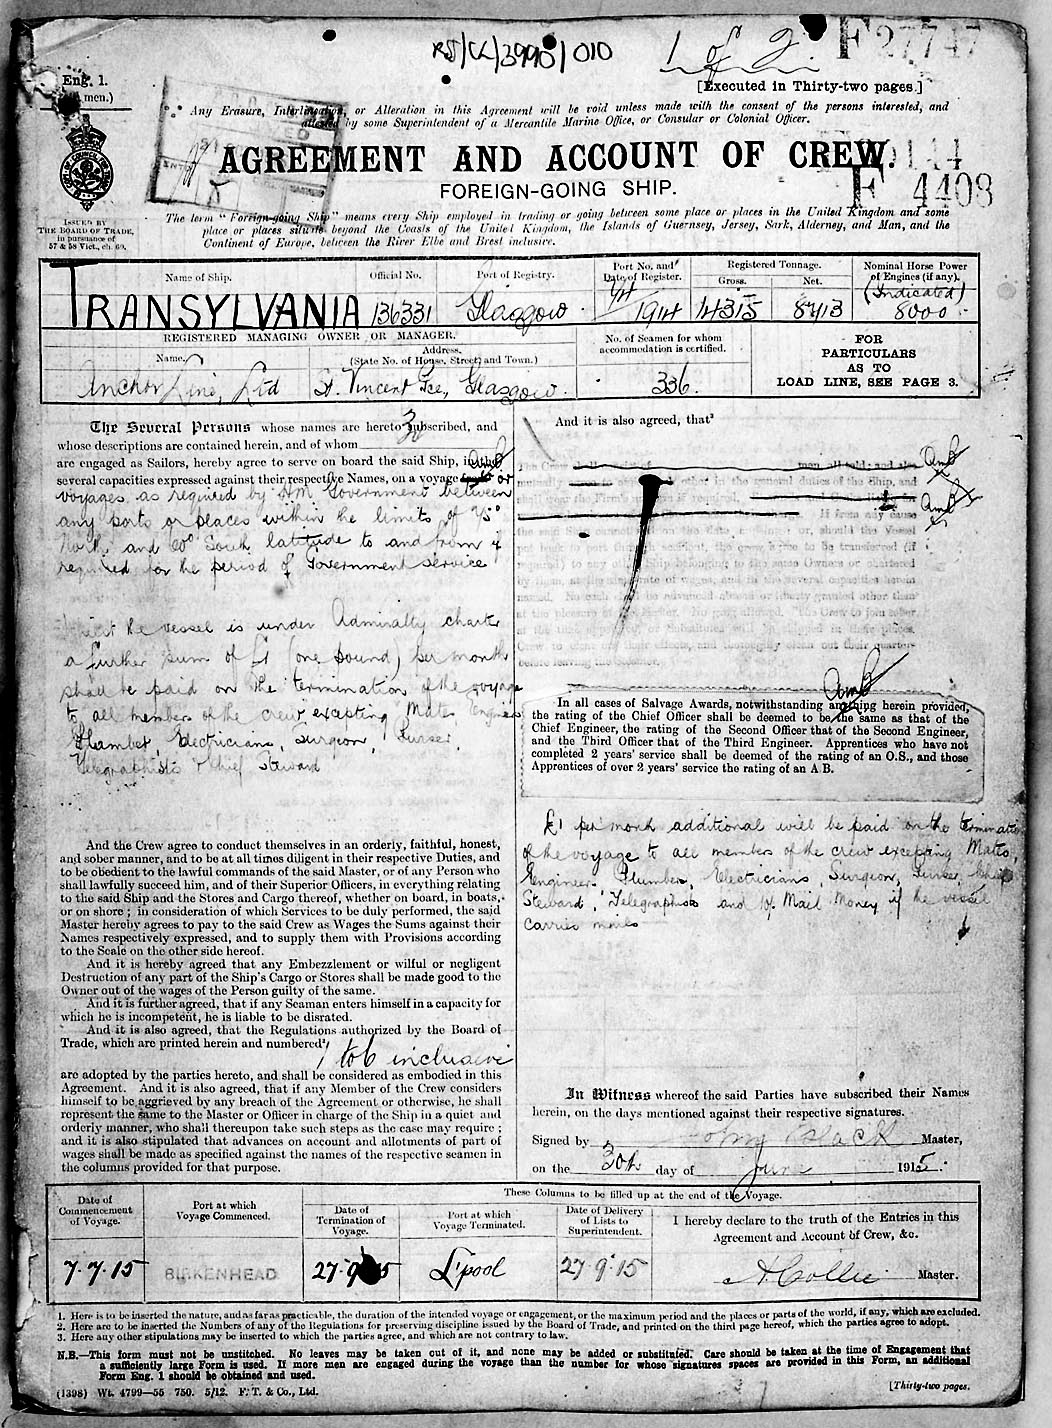 RS/CL/3990/010
1 of 2
F 27747
Eng. 1.
men.)
[Executed in Thirty-two pages.]
Any Erasure, Interlineation, or Alteration in this Agreement will be void unless made with the consent of the persons interested, and
attested by some Superintendent of a Mercantile Marine Office, or Consular or Colonial Officer.
AGREEMENT AND ACCOUNT OF CREW.
F 4408
FOREIGN-GOING SHIP.
ISSUED BY
THE BOARD OF TRADE,
in pursuance of
57 & 58 Vict., ch. 60.
The term "Foreign-going Ship" means every Ship employed in trading or going between some place or places in the United Kingdom and some
place or places situate beyond the Coasts of the United Kingdom, the Islands of Guernsey, Jersey, Sark, Alderney, and Man, and the
Continent of Europe, between the River Elbe and Brest inclusive.
Name of Ship. Official No. Port of Registry. Port No. and Date of Register. Registered Tonnage. Gross. Net. Nominal Horse Power of Engines (if any). (Indicated)
TRANSYLVANIA 136331 Glasgow 1914 14315 8413 8000
REGISTERED MANAGING OWNER OR MANAGER.
Name. Address. (State No. of House, Street, and Town.)
No. of Seamen for whom accommodation is certified.
FOR
PARTICULARS
AS TO
LOAD LINE, SEE PAGE 3.
Anchor Line, Ltd St. Vincent Pce, Glasgow. 336.
The Several Persons whose names are hereto subscribed, and
whose descriptions are contained herein, and of whom
are engaged as Sailors, hereby agree to serve on board the said Ship, in the
several capacities expressed against their respective Names, on a voyage or
voyages as required by HM Government between
any ports or places within the limits of 75°
North and 60° South latitude to and from as
required for the period of Government service
the vessel is under Admiralty charter
a further sum of £1 (one pound) per month
shall be paid on the termination of the voyage
to all members of the crew excepting Mates Engineers
Plumber, Electricians, Surgeon, Purser,
Telegraphists & Chief Steward
And the Crew agree to conduct themselves in an orderly, faithful, honest,
and sober manner, and to be at all times diligent in their respective Duties, and
to be obedient to the lawful commands of the said Master, or of any Person who
shall lawfully succeed him, and of their Superior Officers, in everything relating
to the said Ship and the Stores and Cargo thereof, whether on board, in boats,
or on shore; in consideration of which Services to be duly performed, the said
Master hereby agrees to pay to the said Crew as Wages the Sums against their
Names respectively expressed, and to supply them with Provisions according
to the Scale on the other side hereof.
And it is hereby agreed that any Embezzlement or wilful or negligent
Destruction of any part of the Ship's Cargo or Stores shall be made good to the
Owner out of the wages of the Person guilty of the same.
And it is further agreed, that if any Seaman enters himself in a capacity for
which he is incompetent, he is liable to be disrated.
And it is also agreed, that the Regulations authorized by the Board of
Trade, which are printed herein and numbered²
1 to 6 inclusive
are adopted by the parties hereto, and shall be considered as embodied in this
Agreement. And it is also agreed, that if any Member of the Crew considers
himself to be aggrieved by any breach of the Agreement or otherwise, he shall
represent the same to the Master or Officer in charge of the Ship in a quiet and
orderly manner, who shall thereupon take such steps as the case may require;
and it is also stipulated that advances on account and allotments of part of
wages shall be made as specified against the names of the respective seamen in
the columns provided for that purpose.
And it is also agreed, that³
In all cases of Salvage Awards, notwithstanding anything herein provided,
the rating of the Chief Officer shall be deemed to be the same as that of the
Chief Engineer, the rating of the Second Officer that of the Second Engineer,
and the Third Officer that of the Third Engineer. Apprentices who have not
completed 2 years' service shall be deemed of the rating of an O.S., and those
Apprentices of over 2 years' service the rating of an A B.
£1 per month additional will be paid on the termination
of the voyage to all members of the crew excepting Mates,
Engineers, Plumber, Electricians, Surgeon, Purser, Chief
Steward, Telegraphists and Mail Money if the vessel
carries mails
In Witness whereof the said Parties have subscribed their Names
herein, on the days mentioned against their respective signatures.
Signed by John Black Master,
on the 30th day of June 1915.
These Columns to be filled up at the end of the Voyage.
Date of Commencement of Voyage. Port at which Voyage Commenced. Date of Termination of Voyage. Port at which Voyage Terminated. Date of Delivery of Lists to Superintendent. I hereby declare to the truth of the Entries in this Agreement and Account of Crew, &c.
7.7.15 BIRKENHEAD 27.9.15 L'pool 27.9.15 A Collie Master.
1. Here is to be inserted the nature, and as far as practicable, the duration of the intended voyage or engagement, or the maximum period and the places or parts of the world, if any, which are excluded.
2. Here are to be inserted the Numbers of any of the Regulations for preserving discipline issued by the Board of Trade, and printed on the third page hereof, which the parties agree to adopt.
3. Here any other stipulations may be inserted to which the parties agree, and which are not contrary to law.
N.B.—This form must not be unstitched. No leaves may be taken out of it, and none may be added or substituted. Care should be taken at the time of Engagement that
a sufficiently large Form is used. If more men are engaged during the voyage than the number for whose signatures spaces are provided in this Form, an additional
Form Eng. 1 should be obtained and used.
(1398) Wt. 4799—55 750. 5/12. F. T. & Co., Ltd. [Thirty-two pages.